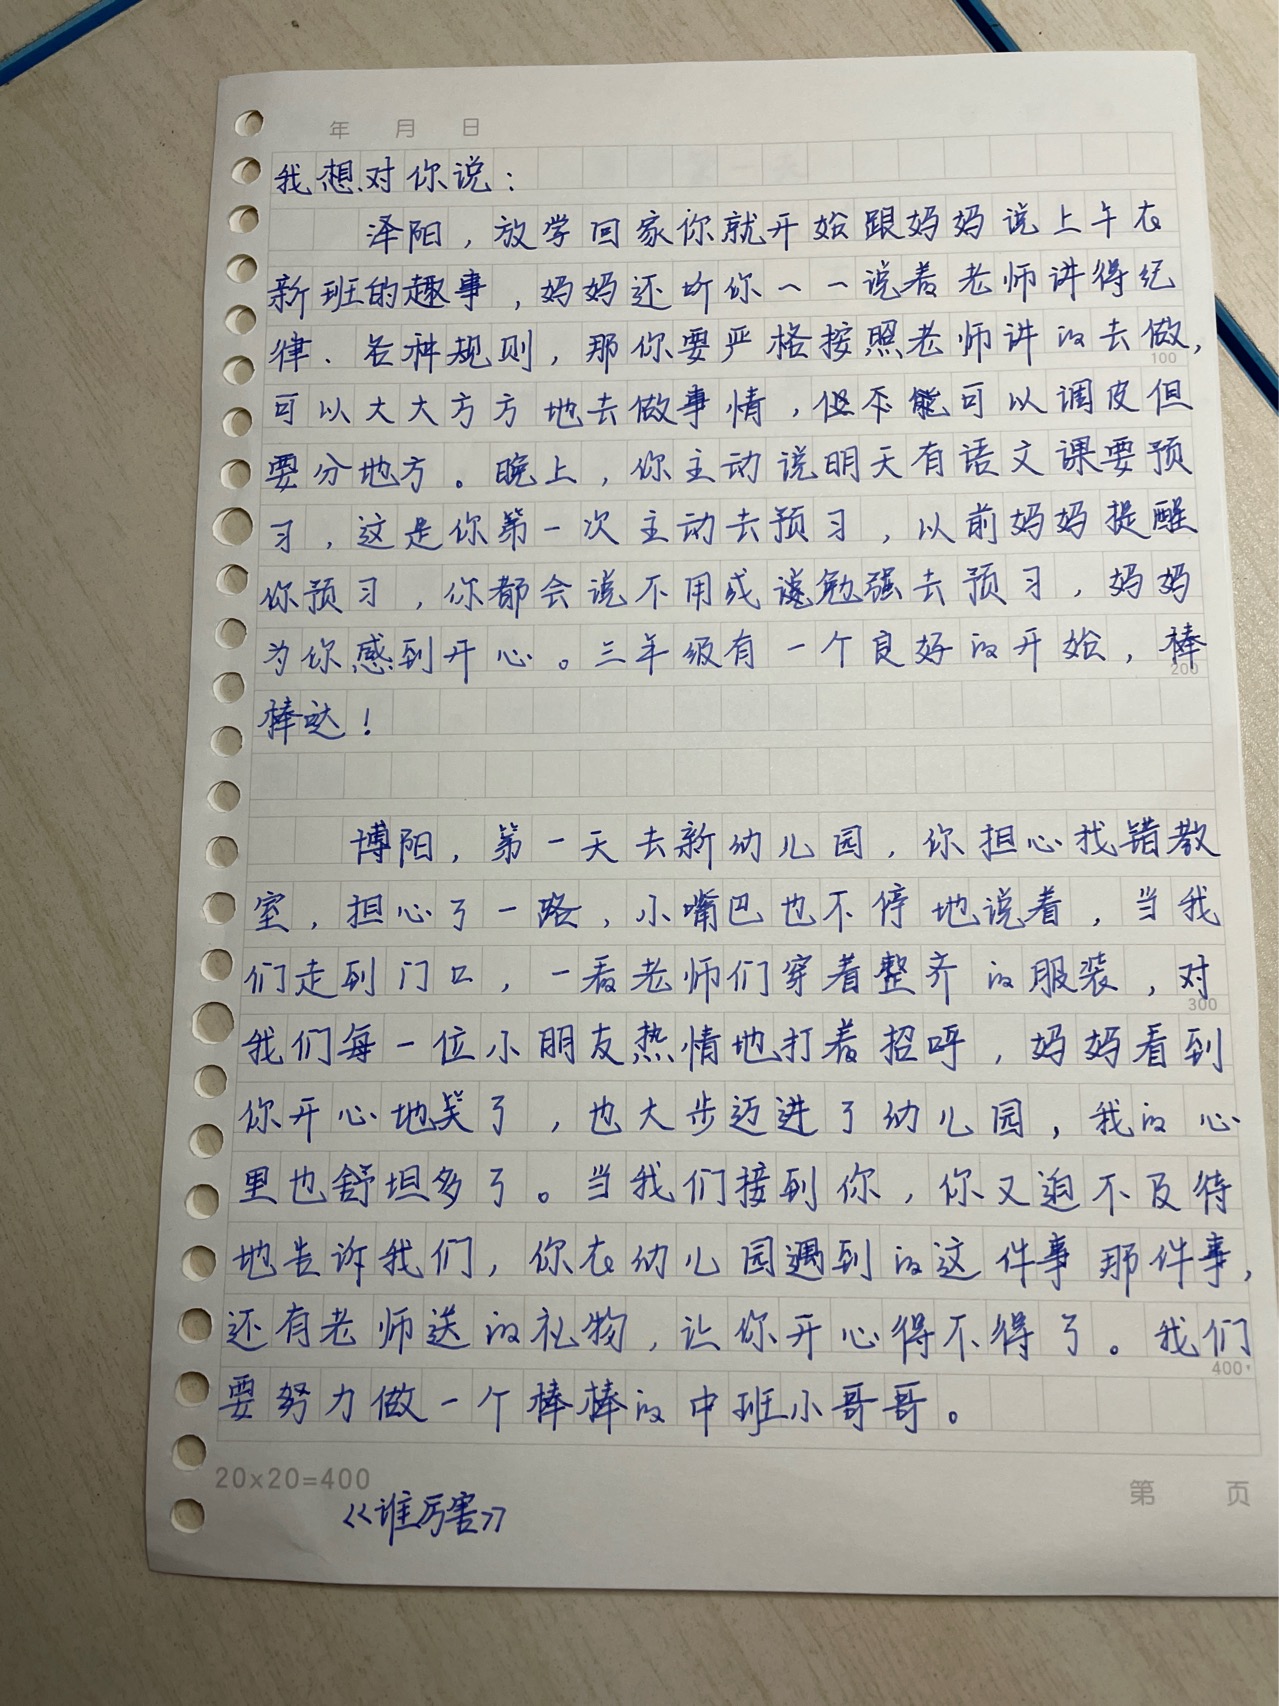 年 月 日
我想对你说：
泽阳，放学回家你就开始跟妈妈说上午在
新班的趣事，妈妈还听你一一说着老师讲得纪
律、各种规则，那你要严格按照老师讲的去做，
100
可以大大方方地去做事情，但不能可以调皮但
要分地方。晚上，你主动说明天有语文课要预
习，这是你第一次主动去预习，以前妈妈提醒
你预习，你都会说不用或说勉强去预习，妈妈
为你感到开心。三年级有一个良好的开始，棒
200
棒哒！
博阳，第一天去新幼儿园，你担心找错教
室，担心了一路，小嘴巴也不停地说着，当我
们走到门口，一看老师们穿着整齐的服装，对
300
我们每一位小朋友热情地打着招呼，妈妈看到
你开心地笑了，也大步迈进了幼儿园，我的心
里也舒坦多了。当我们接到你，你又迫不及待
地告诉我们，你在幼儿园遇到的这件事那件事，
还有老师送的礼物，让你开心得不得了。我们
400
要努力做一个棒棒的中班小哥哥。
20×20=400
第 页
《谁厉害》